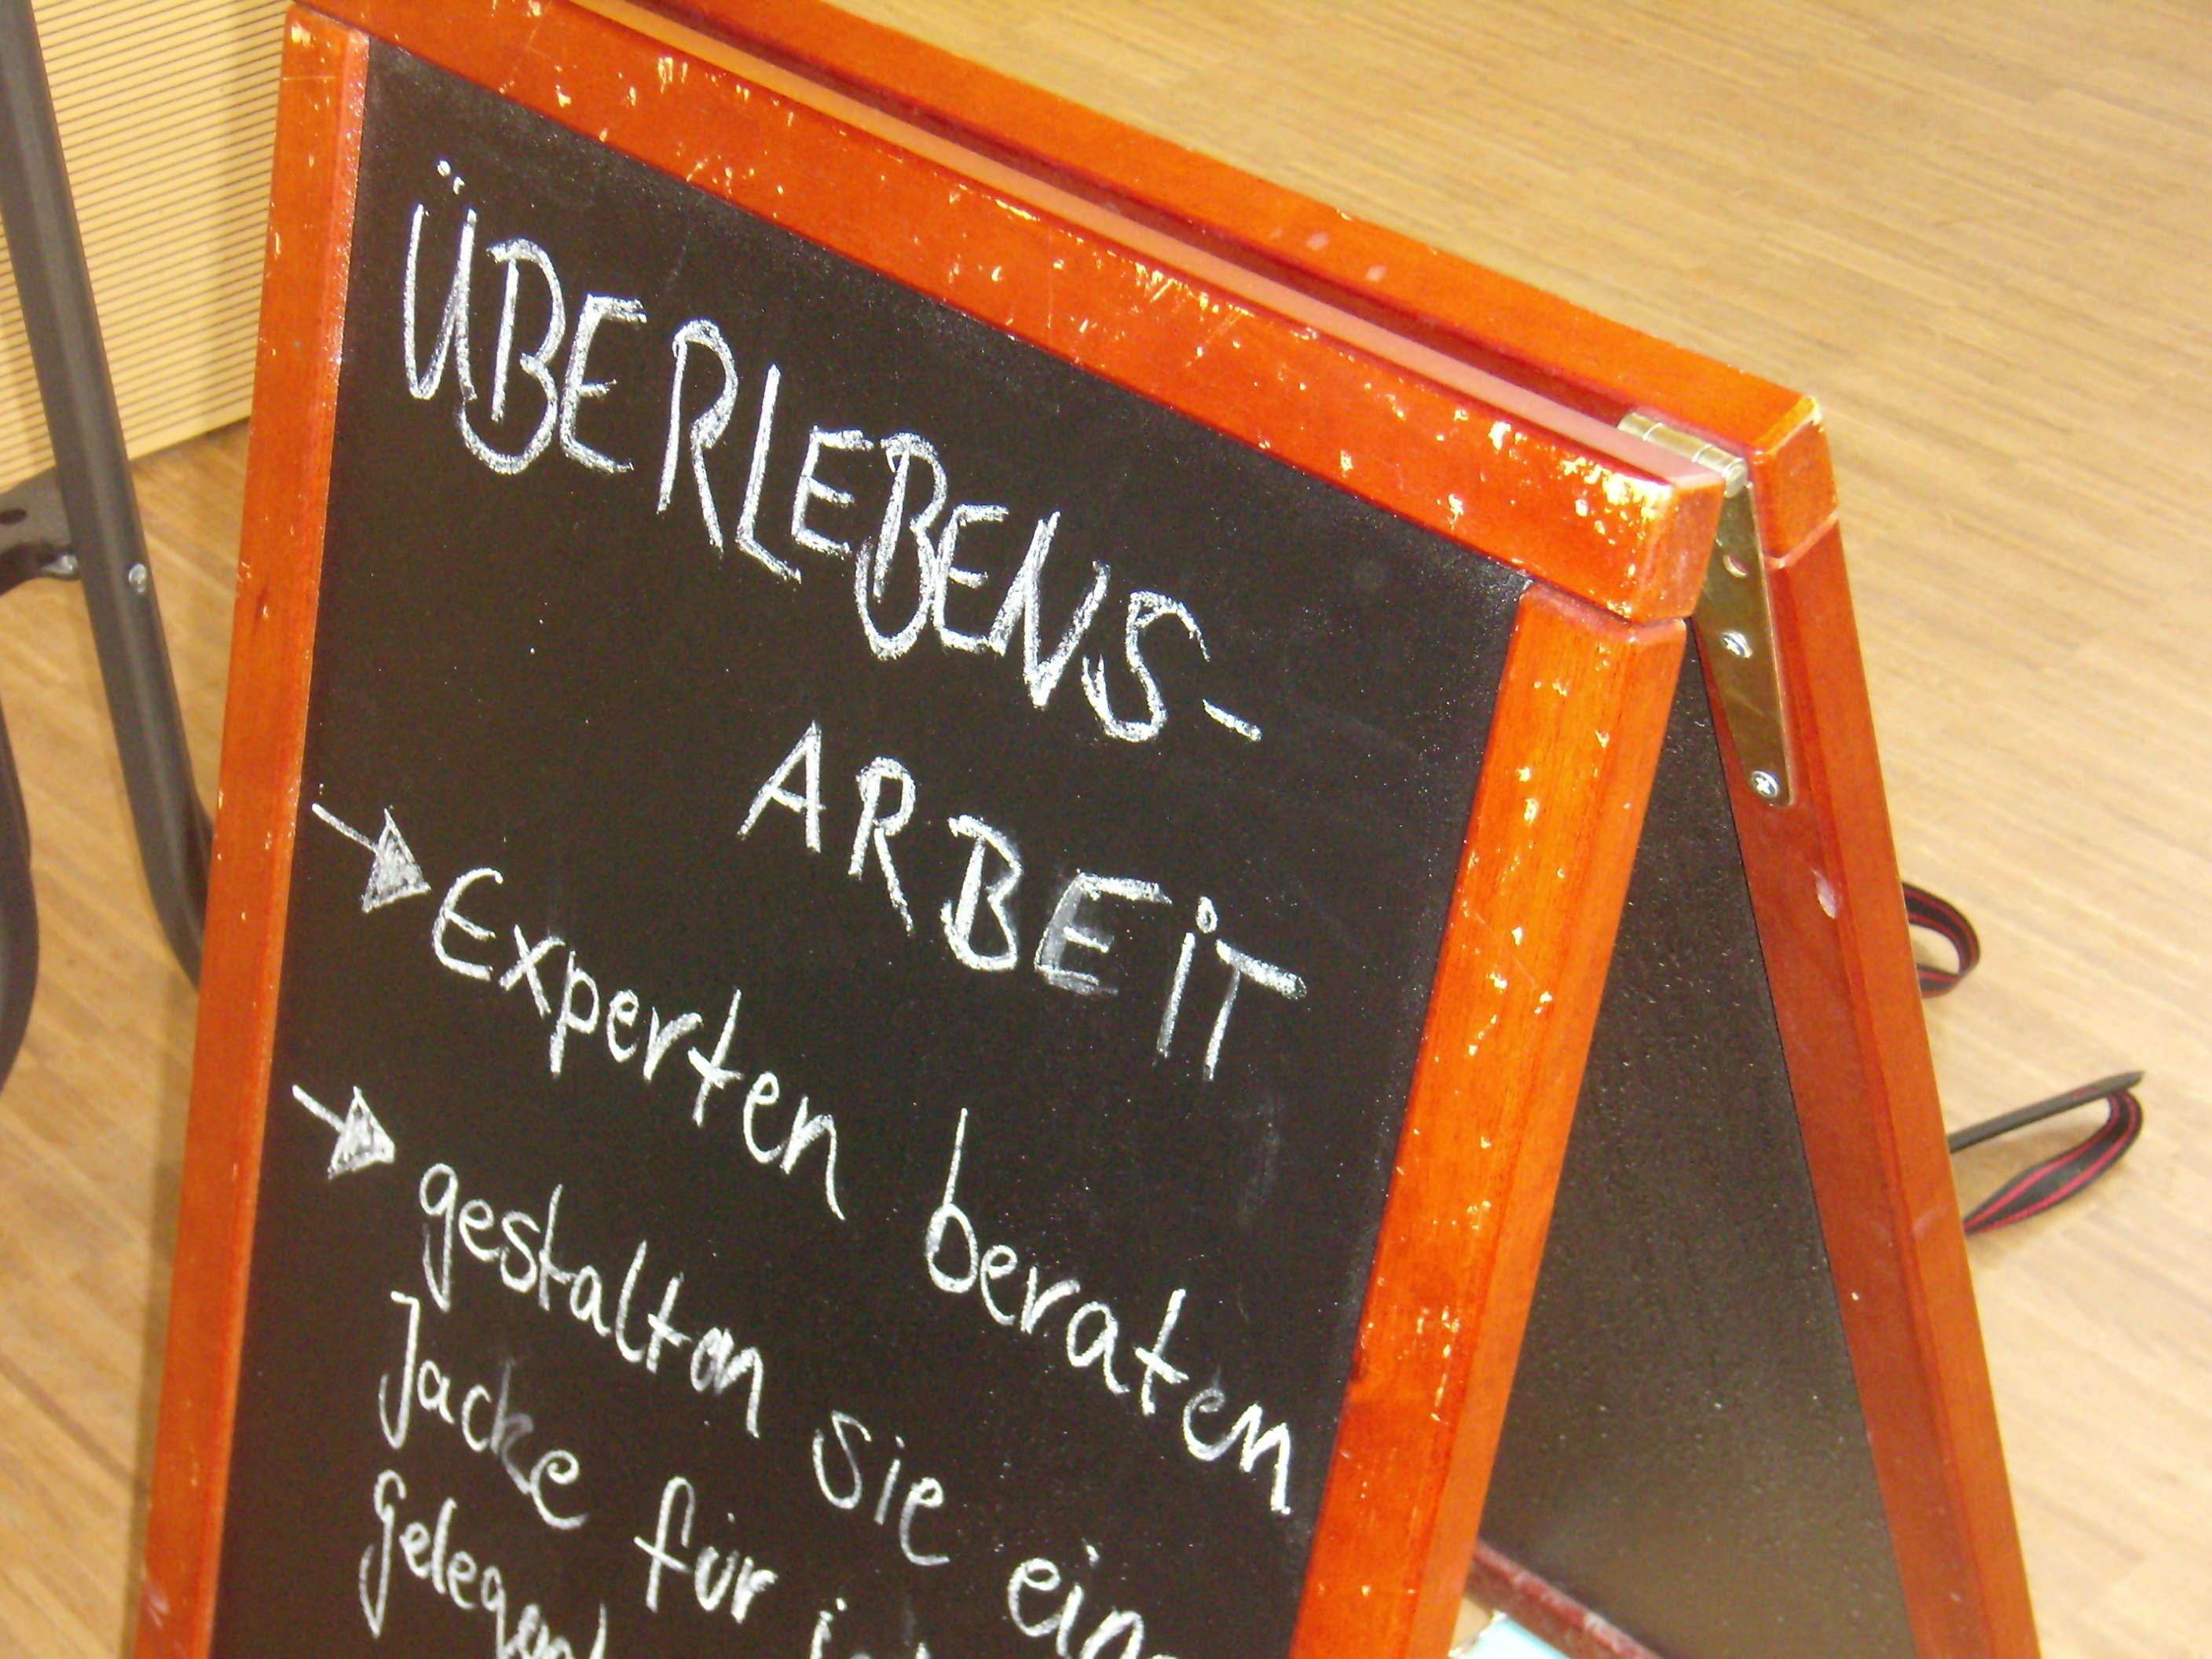 ÜBERLEBENS-
ARBEiT
Experten beraten
gestalten Sie
Jacke für